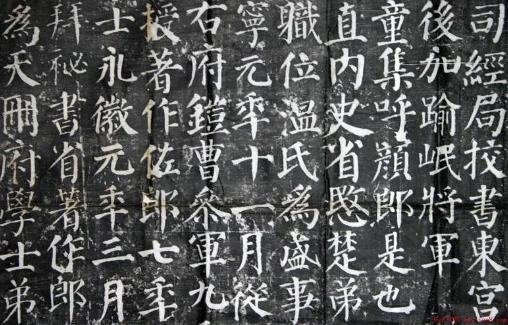 司經局挍書東宮
後加踰岷將軍
童集呼顏郎是也
直内史省愍楚弟
職位温氏為盛事
寧元年十一月從
右府鎧曹參軍九
授著作佐郎七年
士永徽元年三月
拜祕書省著作郎
為天冊府學士弟